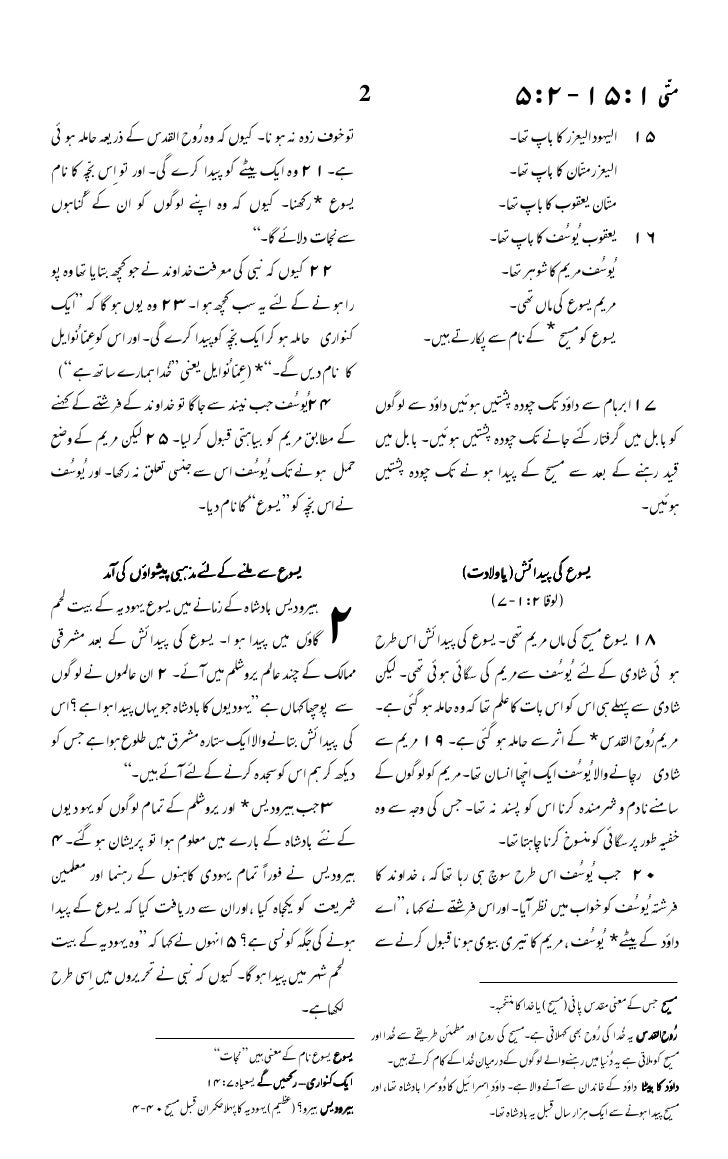 متّی ۱:۱۵ - ۲:۵
2
۱۵ الیہود الیعزر کا باپ تھا۔
الیعزر متّان کا باپ تھا۔
متّان یعقوب کا باپ تھا۔
۱۶ یعقوب یُوسُف کا باپ تھا۔
یُوسُف مریم کا شوہر تھا۔
مریم یسوع کی ماں تھی۔
یسوع کو مسیح * کے نام سے پکارتے ہیں۔
۱۷ ابرہام سے داؤد تک چودہ پشتیں ہوئیں داؤد سے لوگوں
کو بابل میں گرفتار کئے جانے تک چودہ پشتیں ہوئیں۔ بابل میں
قید رہنے کے بعد سے مسیح کے پیدا ہونے تک چودہ پشتیں
ہوئیں۔
یسوع کی پیدائش (یا ولادت)
(لوقا ۲:۱-۷)
۱۸ یسوع مسیح کی ماں مریم تھی۔ یسوع کی پیدائش اس طرح
ہوئی شادی کے لئے یُوسُف سے مریم کی سگائی ہوئی تھی۔ لیکن
شادی سے پہلے ہی اس کو اس بات کا علم تھا کہ وہ حاملہ ہو گئی ہے۔
مریم رُوح القدس * کے اثر سے حاملہ ہو گئی ہے۔ ۱۹ مریم سے
شادی رچانے والا یُوسُف ایک اچّھا انسان تھا۔ مریم کو لوگوں کے
سامنے نادم و شرمندہ کرنا اس کو پسند نہ تھا۔ جس کی وجہ سے وہ
خفیہ طور پر سگائی کو منسوخ کرنا چاہتا تھا۔
۲۰ جب یُوسُف اس طرح سوچ ہی رہا تھا کہ ، خداوند کا
فرشتہ یُوسُف کو خواب میں نظر آیا۔ اور اس فرشتے نے کہا ، ”اے
داؤد کے بیٹے* یُوسُف ، مریم کا تیری بیوی ہونا قبول کرنے سے
مسیح جس کے معنی مقدس پانی (مسیح) یا خدا کا منتخبہ۔
رُوح القدس یہ خُدا کی رُوح بھی کھلاتی ہے۔ مسیح کی روح اور مطمئن طریقے سے خُدا اور
مسیح کو ملاتی ہے یہ دُنیا میں رہنے والے لوگوں کے درمیان خُدا کے کام کرتے ہیں۔
داؤد کا بیٹا داؤد کے خاندان سے آنے والا ہے۔ داؤد اِسرائیل کا دُوسرا بادشاہ تھا، اور
مسیح پیدا ہونے سے ایک ہزار سال قبل یہ بادشاہ تھا۔
تو خوف زدہ نہ ہونا۔ کیوں کہ وہ رُوح القدس کے ذریعہ حاملہ ہوئی
ہے۔ ۲۱ وہ ایک بیٹے کو پیدا کرے گی۔ اور تو اِس بچّہ کا نام
یسوع *رکھنا۔ کیوں کہ وہ اپنے لوگوں کو ان کے گناہوں
سے نجات دلائے گا۔“
۲۲ کیوں کہ نبی کی معرفت خداوند نے جو کچھ بتایا تھا وہ پو
را ہونے کے لئے یہ سب کچھ ہوا۔ ۲۳ وہ یوں ہو گا کہ ”ایک
کنواری حاملہ ہو کر ایک بچّہ کو پیدا کرے گی۔ اور اس کو عمّانُوایل
کا نام دیں گے۔“* (عِمّانُوایل یعنی ”خُدا ہمارے ساتھ ہے“)
۲۴ یُوسُف جب نیند سے جاگا تو خداوند کے فرشتے کے کھنے
کے مطابق مریم کو بیاہتی قبول کر لیا۔ ۲۵ لیکن مریم کے وضع
حمل ہونے تک یُوسُف اس سے جنسی تعلق نہ رکھا۔ اور یُوسُف
نے اس بچّہ کو ”یسوع“ کا نام دیا۔
یسوع سے ملنے کے لئے مذہبی پیشواؤں کی آمد
۲ ہیرودیس بادشاہ کے زمانے میں یسوع یہودیہ کے بیت لحم
گاؤں میں پیدا ہوا۔ یسوع کی پیدائش کے بعد مشرقی
ممالک کے چند عالم یروشلم میں آئے۔ ۲ ان عالموں نے لوگوں
سے پوچھا کہاں ہے ”یہودیوں کا بادشاہ جو یہاں پیدا ہوا ہے ؟اس
کی پیدائش بتانے والا ایک ستارہ مشرق میں طلوع ہوا ہے جس کو
دیکھ کر ہم اس کو سجدہ کرنے کے لئے آئے ہیں۔“
۳ جب ہیرودیس * اور یروشلم کے تمام لوگوں کو یہودیوں
کے نئے بادشاہ کے بارے میں معلوم ہوا تو پریشان ہو گئے۔ ۴
ہیرودیس نے فوراً تمام یہودی کاہنوں کے رہنما اور معلمین
شریعت کو یکجاہ کیا ،اور ان سے دریافت کیا کہ یسوع کے پیدا
ہونے کی جگہ کونسی ہے؟ ۵ انہوں نے کہا کہ ”وہ یہودیہ کے بیت
لحم شہر میں پیدا ہو گا۔ کیوں کہ نبی نے تحریروں میں اِسی طرح
لکھا ہے۔
یسوع یسوع نام کے معنی ہیں ”نجات“
ایک کنواری – رکھیں گے یسعیاہ ۷:۱۴
ہیرودیس ہیرو؟ (عظیم) یہودیہ کا پہلا حکمران قبل مسیح ۴۰-۴